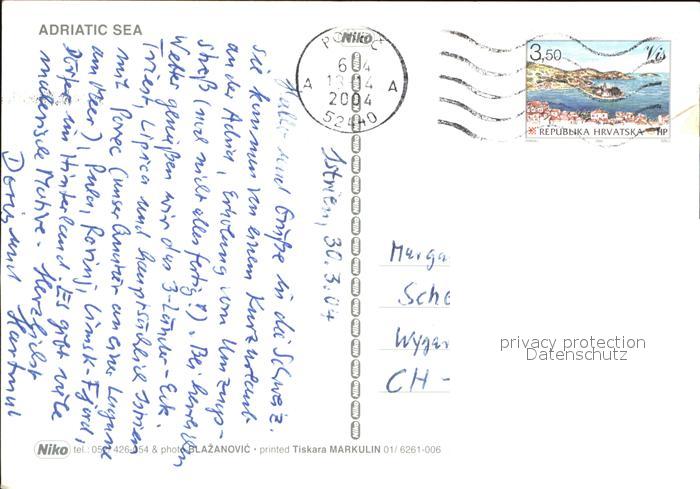 ADRIATIC SEA
Istrien, 30.3.04
Hallo und Grüße in die Schweiz.
Sie kommen von einem Kurzurlaub
an der Adria, Erholung vom Umzugs-
streß (und nicht alles fertig!). Bei herrlichem
Wetter genießen wir das 3-Länder-Eck.
Triest, Lipica und hauptsächlich Istrien
mit Porec (unser Quartier an einer Lagune
am Meer), Pula, Rovinj, Limsk-Fjord,
Dörfer im Hinterland. Es gibt viele
malerische Motive. Herzlichst
Doris und Hartmut
Niko
PO
6 04
13 04
2004
A A
52440
3,50 Vis
REPUBLIKA HRVATSKA HP
Marga
Sche
CH -
privacy protection
Datenschutz
Niko tel.: 05 426-054 & photo BLAŽANOVIĆ • printed Tiskara MARKULIN 01/ 6261-006